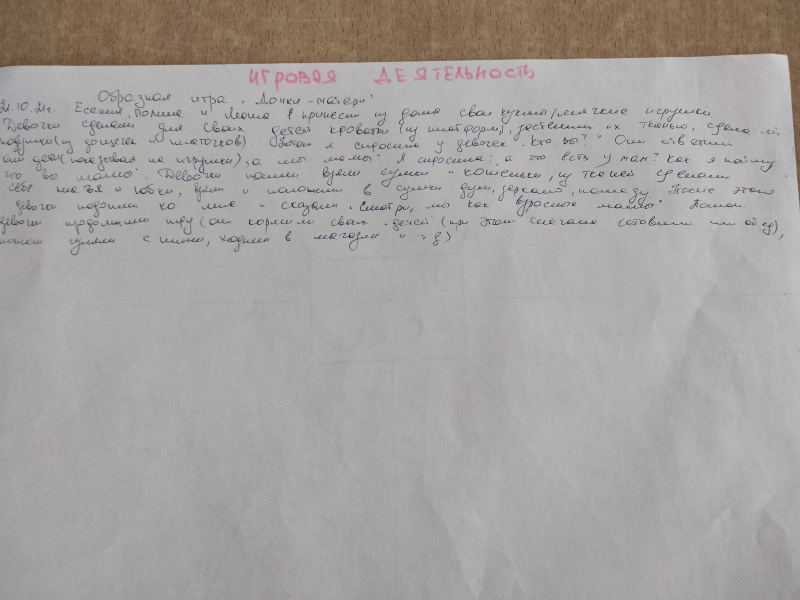 ИГРОВАЯ ДЕЯТЕЛЬНОСТЬ
Образная игра "Дочки-матери"
21.10.21г. Есения, Полина и Маша принесли из дома свои куклы/мягкие игрушки
Девочки сделали для своих детей кроватки (из платформ), застелили их тканью, сделали
подушки (из и платочков). Потом я спросила у девочек "Кто вы?" Они ответили
дети (показывая на игрушки), а мы мамы". Я спросила: а что есть у мам? Как я пойму
что вы мамы?" Девочки взяли сумки и кошельки, из тканей сделали
себе платья и юбки, взяли и положили в сумки духи, зеркало, помаду. После этого
девочки подошли ко мне и сказали "Смотри, мы как взрослые мамы" Потом
девочки продолжили игру (они кормили своих детей (при этом сначала готовили им еду),
потом гуляли с ними, ходили в магазин и т.д)